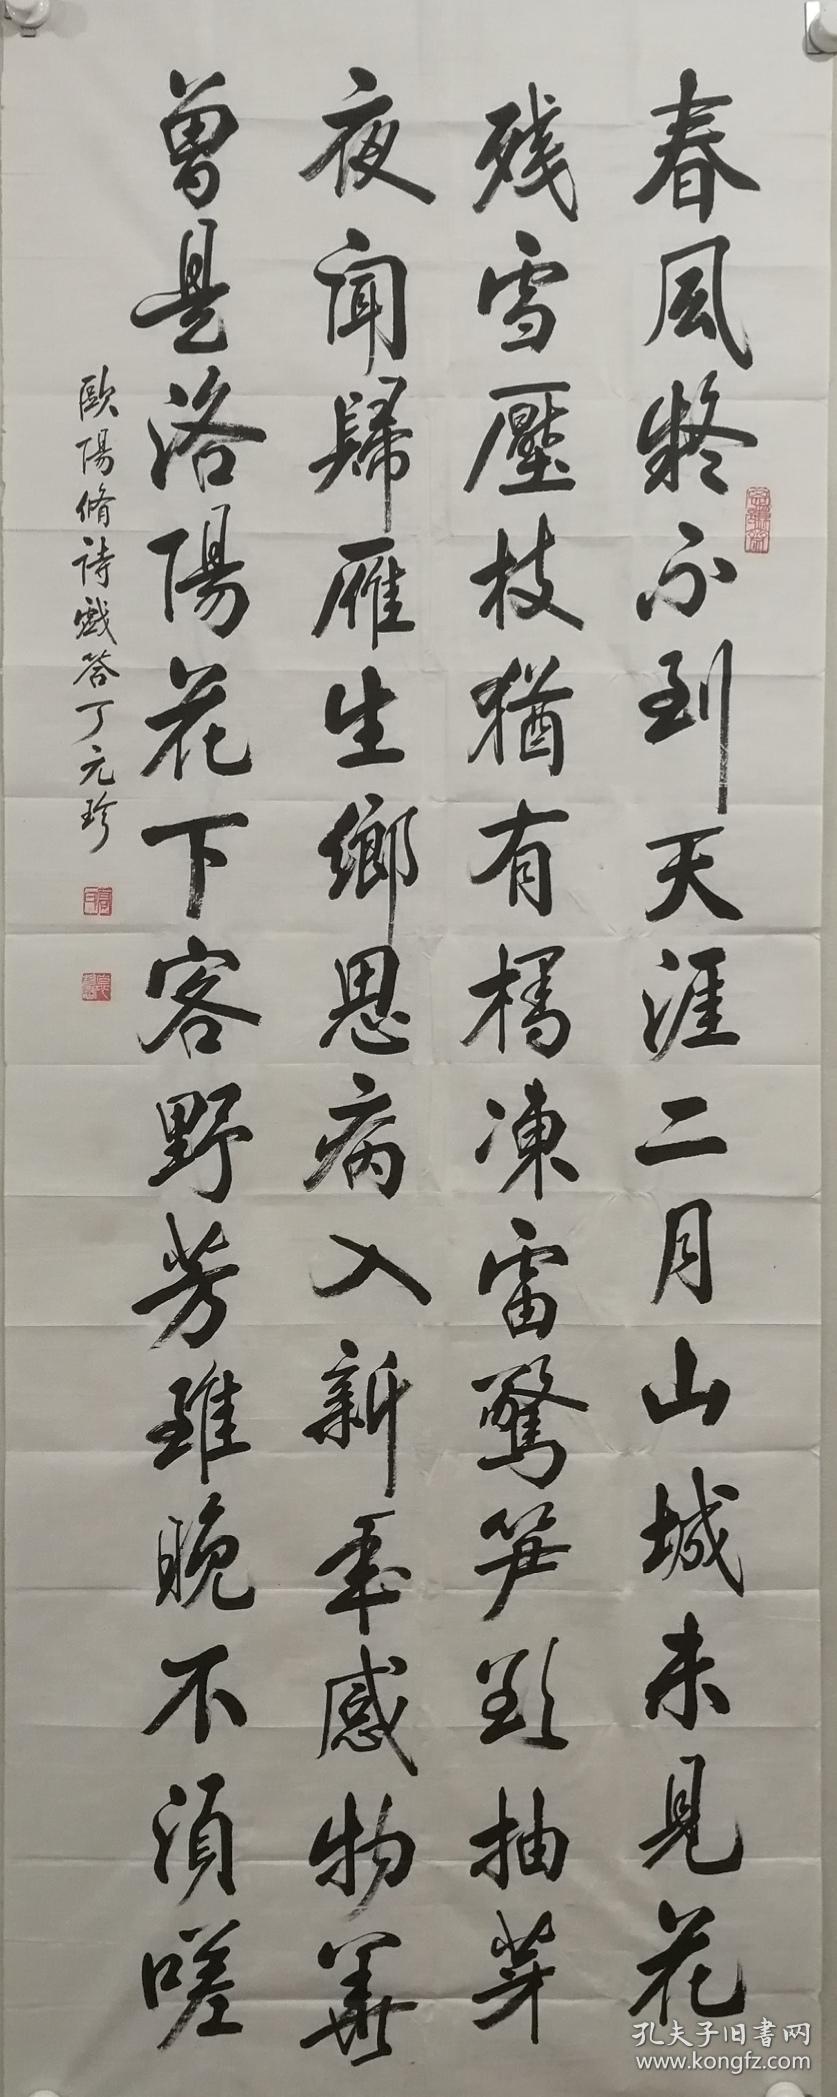 春風疑不到天涯二月山城未見花
残雪壓枝猶有橘凍雷驚笋欲抽芽
夜聞歸雁生鄉思病入新年感物華
曾是洛陽花下客野芳雖晚不須嗟
歐陽脩詩戲答丁元珍
孔夫子旧書网
www.kongfz.com